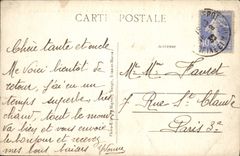 CARTE POSTALE
Chère tante et oncle
Me voici bientôt de
retour, j'ai eu un
temps superbe, très
chaud, tout le monde
va bien et vous envoie
le bonjour et recevez
mes bons baisers
Mr Mme Fauvet
7 Rue St Claude
Paris 3e